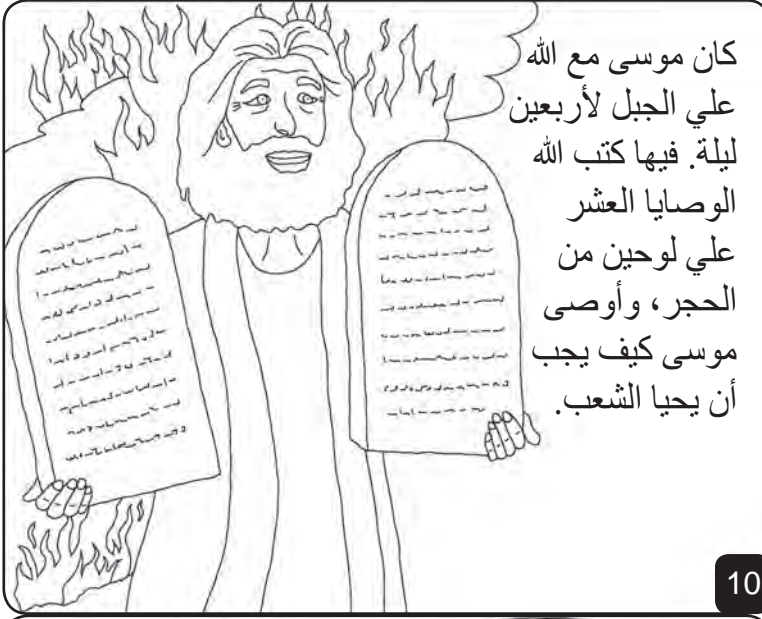 كان موسى مع الله
علي الجبل لأربعين
ليلة. فيها كتب الله
الوصايا العشر
علي لوحين من
الحجر، وأوصى
موسى كيف يجب
أن يحيا الشعب.
10